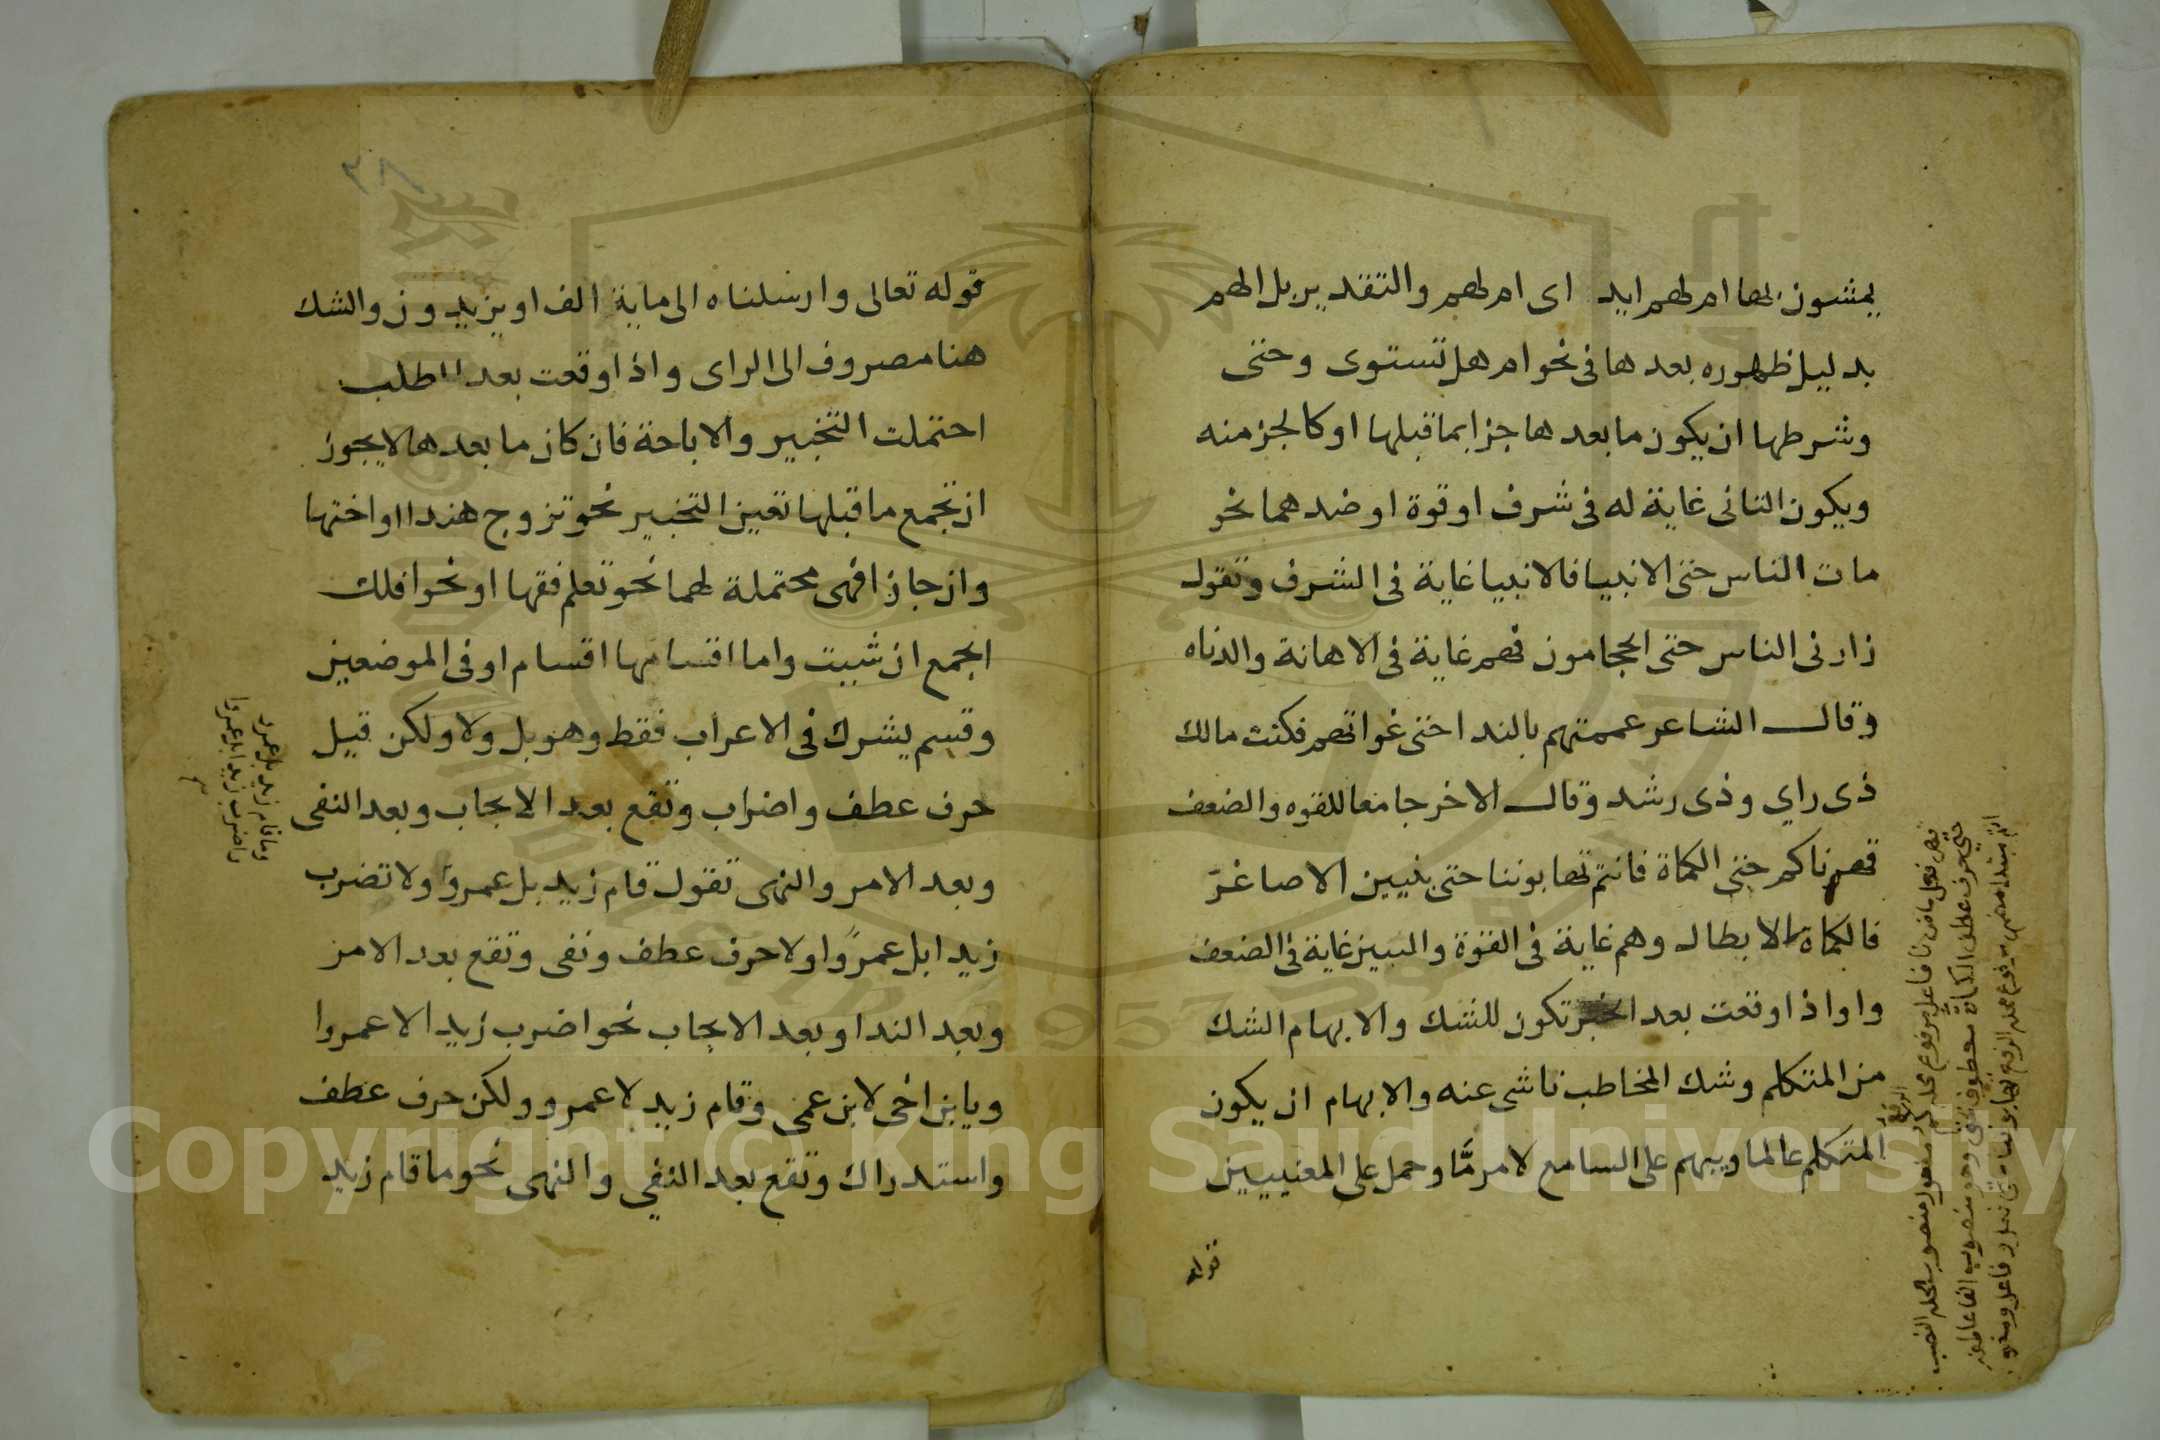 يمشون بها ام لهم ايد اى ام لهم والتقدير بل الهم
بدليل ظهوره بعدها فى نحو ام هل تستوى وحتى
وشرطها ان يكون ما بعدها جزا بما قبلها او كالجز منه
ويكون الثانى غاية له فى شرف او قوة او ضدهما نحو
مات الناس حتى الانبيا فالانبيا غاية فى الشرف وتقول
زارنى الناس حتى الحجامون فهم غاية فى الاهانة والدناه
وقال الشاعر عممتهم بالندا حتى غواتهم فكنت مالك
ذى راي وذى رشد وقال الاخر جامعا للقوه والضعف
قهرناكم حتى الكماة فانتم تهابوننا حتى بنيين الاصاغر
فالكماة الابطال وهم غاية فى القوة والبنين غاية فى الضعف
واو اذا وقعت بعد الخبر تكون للشك والابهام الشك
من المتكلم وشك المخاطب ناشى عنه والابهام ان يكون
المتكلم عالما ويبهم على السامع لامر مّا وحمل على المعنيين
قوله
قهر فعل ماض نا فاعل مرفوع محله الرفع كم مفعول منصوب محله النصب
حتى حرف عطف الكماة معطوف
انتم مبتدا مرفوع محله الرفع تهابوننا
٣٨
قوله تعالى وارسلناه الى ماية الف او يزيدون والشك
هنا مصروف الى الراى واذا وقعت بعد الطلب
احتملت التخيير والاباحة فان كان ما بعدها لا يجوز
ان تجمع ما قبلها تعين التخيير نحو تزوج هندا او اختها
وان جاز افهى محتملة لهما نحو تعلم فقها او نحوا فلك
الجمع ان شيت واما اقسامها اقسام او فى الموضعين
وقسم يشرك فى الاعراب فقط وهو بل ولا ولكن قيل
حرف عطف واضراب وتقع بعد الايجاب وبعد النفى
وبعد الامر والنهى تقول قام زيد بل عمرو ولا تضرب
زيدا بل عمرًوا ولا حرف عطف ونفى وتقع بعد الامر
وبعد الندا وبعد الايجاب نحو اضرب زيد الا عمروا
ويابن اخى لابن عمى وقام زيد لا عمرو ولكن حرف عطف
واستدراك وتقع بعد النفي والنهى نحو ما قام زيد
وما قام زيد بل عمرو
واضرب زيدا بل عمروا
Copyright © King Saud University
1957